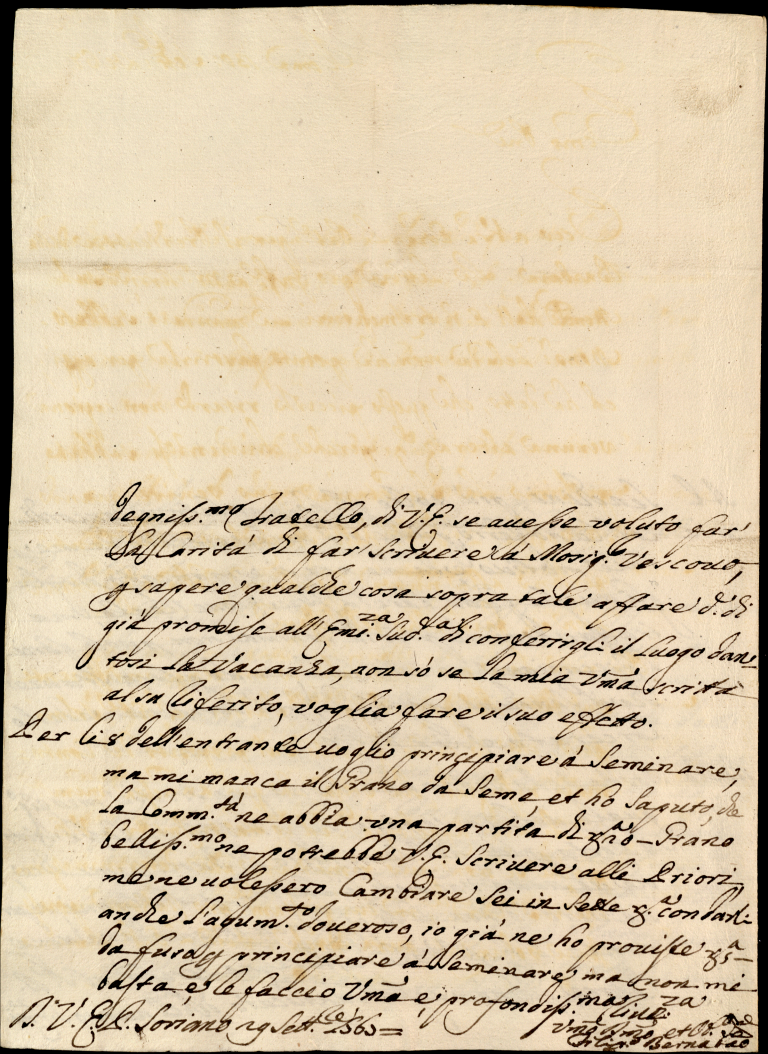 degniss.mo Fratello, di V.E. se avesse voluto far'
la Caritá di far scrivere á Monsig.e Vescovo,
p sapere qualche cosa sopra tale affare d.' di
giá promise all'Emi.za Sud.a di conferirgli il Luogo dan=
tosi la Vacanza, non só se la mia Vmã scritta
al sa riferito, voglia fare il suo effetto.
Per li 8 dell'entrante voglio principiare á Seminare,
ma mi manca il Grano da Seme, et ho saputo, che
la Comm.tá ne abbia una partita di Grano
belliss.mo ne potrebbe V.E. scrivere alli Priori,
me ne volessero Cambiare sei in sette con darli
anche l'agum.to doveroso, io giá ne ho proviste
da fusa p principiare á Seminare, ma non mi
basta, e le faccio Vmã e profondiss.ma River.za
D. V. E. Soriano 29 Sett.e
Vmo et
Bernardo